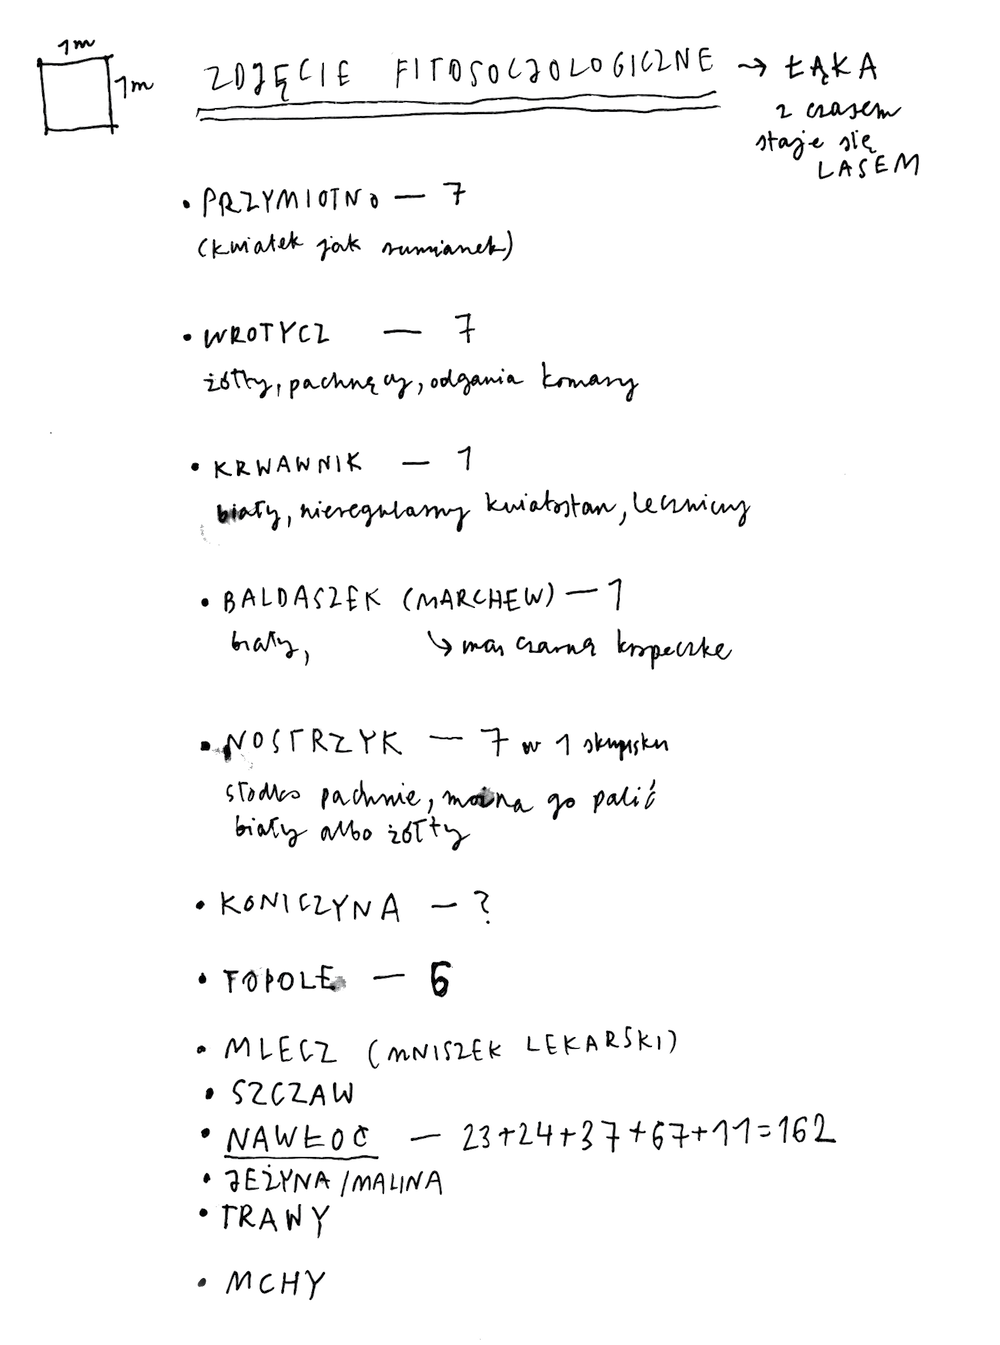 1m
1m
ZDJĘCIE FITOSOCJOLOGICZNE → ŁĄKA
z czasem
staje się
LASEM
• PRZYMIOTNO — 7
(kwiatek jak rumianek)
• WROTYCZ — 7
żółty, pachnący, odgania komary
• KRWAWNIK — 1
biały, nieregularny kwiatostan, leczniczy
• BALDASZEK (MARCHEW) — 1
biały, ↳ ma czarną kropeczkę
• NOSTRZYK — 7 w 1 skupisku
słodko pachnie, można go palić
biały albo żółty
• KONICZYNA — ?
• TOPOLE — 6
• MLECZ (MNISZEK LEKARSKI)
• SZCZAW
• NAWŁOĆ — 23+24+37+67+11=162
• JEŻYNA/MALINA
• TRAWY
• MCHY